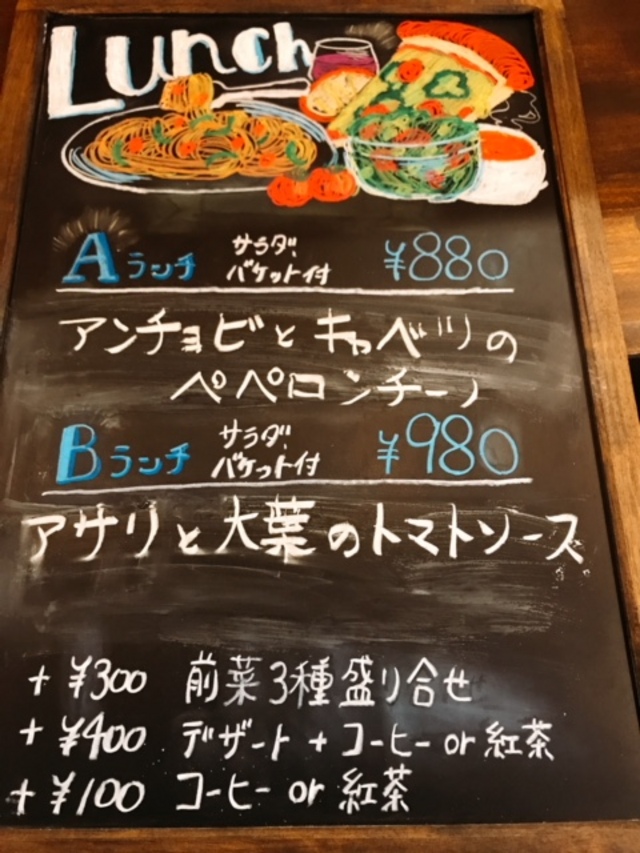 Lunch
Aランチ サラダ、バケット付 ¥880
アンチョビとキャベツの
ペペロンチーノ
Bランチ サラダ、バケット付 ¥980
アサリと大葉のトマトソース
+ ¥300 前菜3種盛り合せ
+ ¥400 デザート + コーヒー or 紅茶
+ ¥100 コーヒー or 紅茶